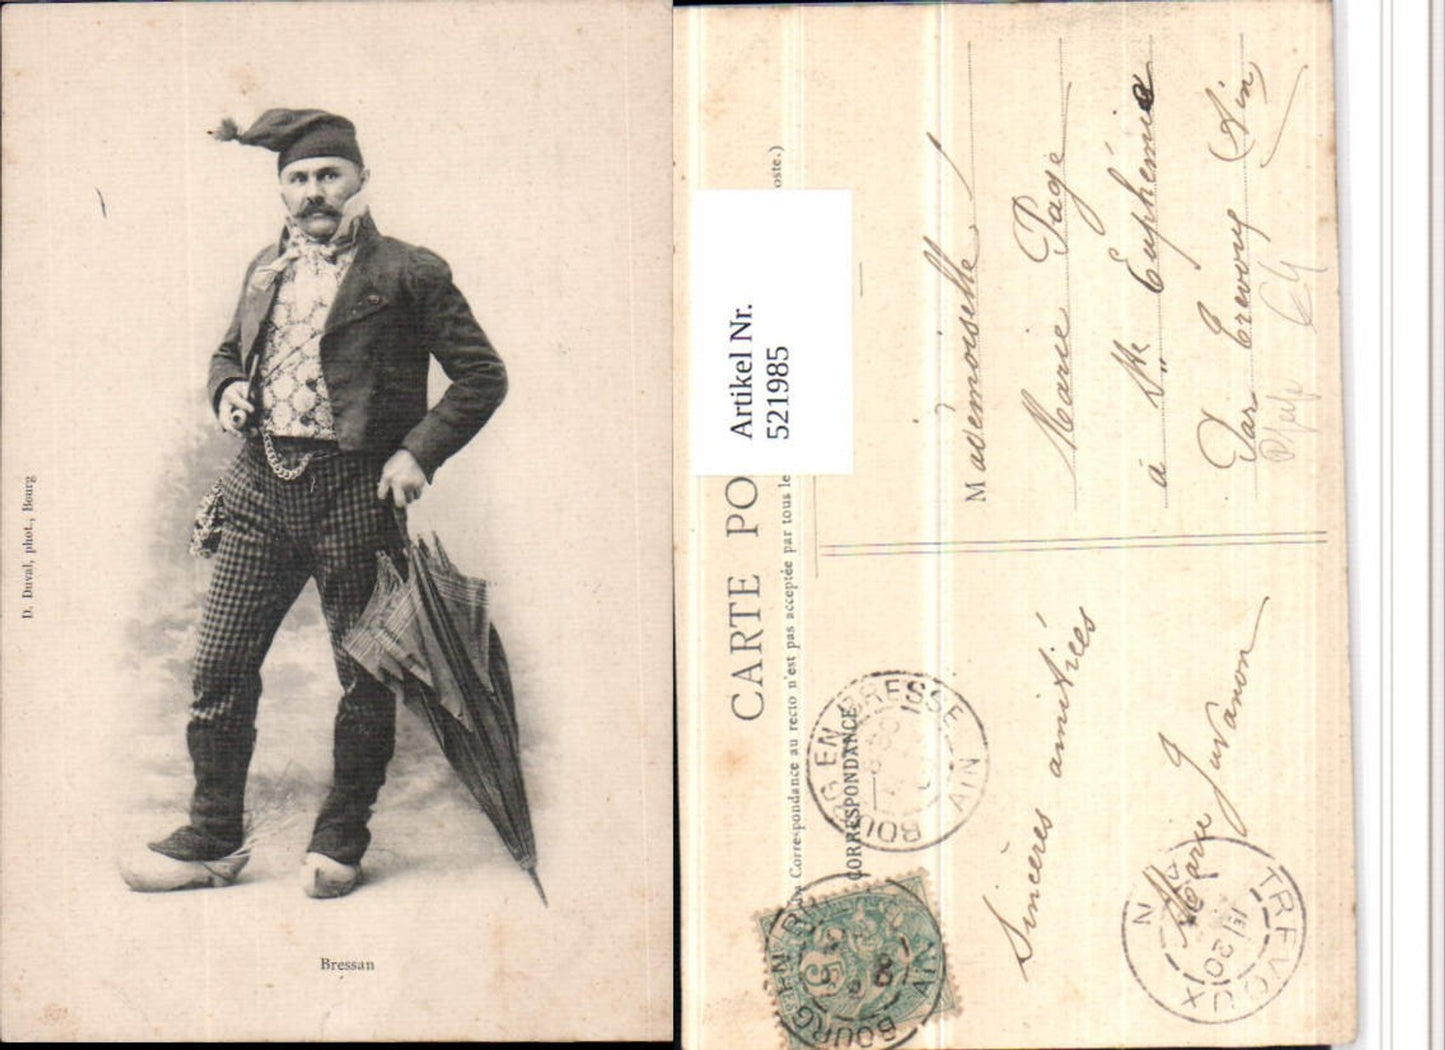 D. Duval, phot., Bourg
Bressan
CARTE PO
Correspondance au recto n'est pas acceptée par tous le
oste.)
Artikel Nr.
521985
CORRESPONDANCE
Mademoiselle
Marie Page
à Ste Euphémie
Par Trevoux (Ain)
Sincères amitiés
Marie Juvanon
BOURG EN BRESSE
AIN
5
BOURG EN BR
8
AIN
TREVOUX
N